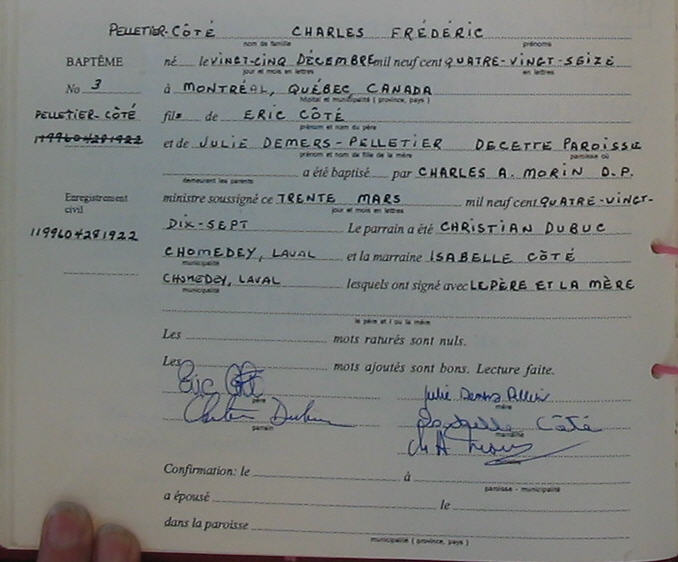 PELLETIER-CÔTÉ CHARLES FRÉDÉRIC
nom de famille prénoms
BAPTÊME né le VINGT-CINQ DÉCEMBRE mil neuf cent QUATRE-VINGT-SEIZE
jour et mois en lettres en lettres
No 3 à MONTRÉAL, QUÉBEC, CANADA
hôpital et municipalité ( province, pays )
PELLETIER-CÔTÉ fils de ERIC CÔTÉ
prénom et nom du père
1199604281922 et de JULIE DEMERS-PELLETIER DECETTE PAROISSE
prénom et nom de fille de la mère paroisse où
a été baptisé par CHARLES A. MORIN O.P.
demeurent les parents
Enregistrement civil ministre soussigné ce TRENTE MARS mil neuf cent QUATRE-VINGT-
jour et mois en lettres en lettres
1199604281922 DIX-SEPT Le parrain a été CHRISTIAN DUBUC
CHOMEDEY, LAVAL et la marraine ISABELLE CÔTÉ
municipalité
CHOMEDEY, LAVAL lesquels ont signé avec LE PÈRE ET LA MÈRE
municipalité
le père et / ou la mère
Les mots raturés sont nuls.
Les mots ajoutés sont bons. Lecture faite.
Eric Côté Julie Demers Pelletier
père mère
Christian Dubuc Isabelle Côté
parrain marraine
Ch A Morin
Confirmation: le à
paroisse - municipalité
a épousé le
dans la paroisse
municipalité ( province, pays )